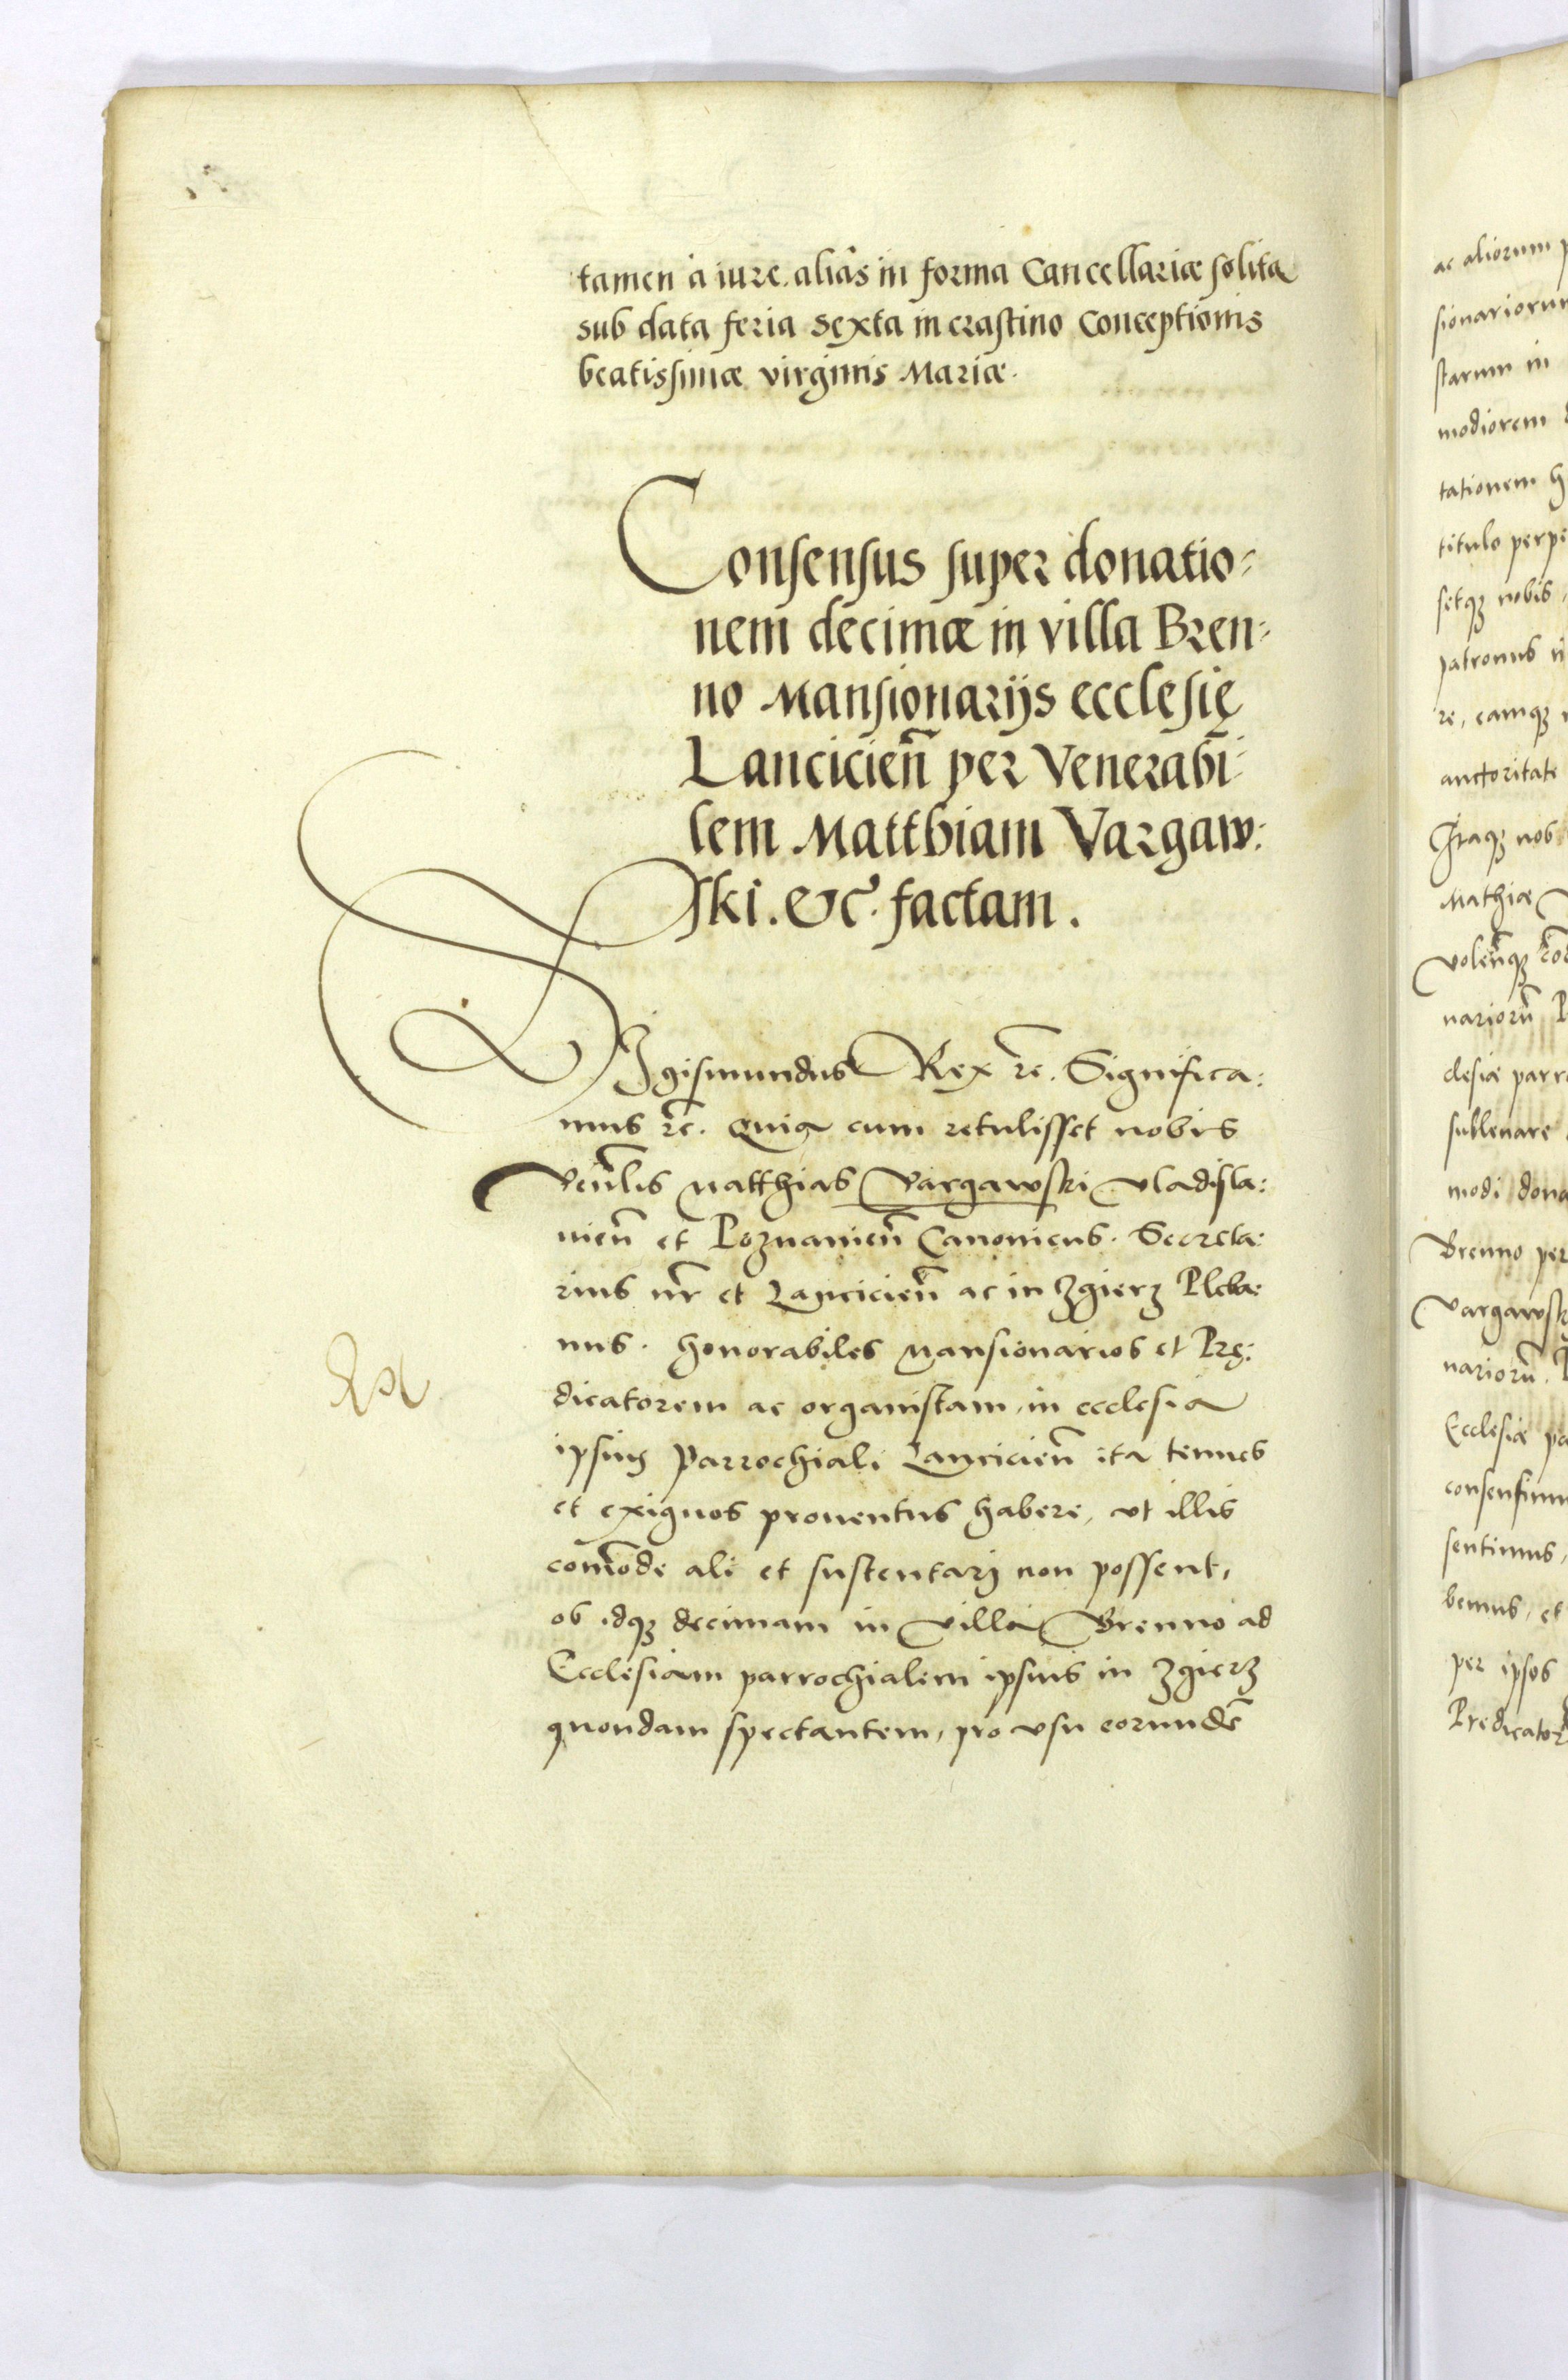 tamen à iure. aliâs in forma Cancellariæ solita
sub data feria sexta in crastino Conceptionis
beatissimæ virginis Mariæ.
Consensus super donatio=
nem decimæ in villa Bren=
no Mansionarijs ecclesię
Lancicien̄ per Venerabi=
lem Matthiam Vargaw:
ski. &c. factam.
SIgismundus Rex rc̄. Significa:
mus rc̄. Quia cum retulisset nobis
Venlīs Matthias Vargawski Vladisla:
uien̄ et Poznanien̄ Canonicus. Secreta:
rius nr̄ et Lancicien̄ ac in Zgierz Pleba:
nus. honorabiles Mansionarios et Prę:
dicatorem ac organistam, in ecclesia
ipsius Parrochiali Lancicien̄ ita tenues
et exiguos prouentus habere, vt illis
com̄ode ali et sustentarj non possent,
ob idqꝫ decimam in Villa Brenno ad
Ecclesiam parrochialem ipsius in Zgierz
quondam spectantem, pro vsu eorundē
ac aliorum
sionariorum
starum in
modiorem
tationem
titulo
setqꝫ nobis,
patronus
re, eamqꝫ
auctoritate
Itaqꝫ nob
Mathiæ
volen̄qꝫ
nariorū
clesiæ parro
subleuare
modi dona
Brenno per
Vargawsk
nariorū.
Ecclesiæ pa
consensum
sentimus,
bemus, et
per ipsos
Predicator